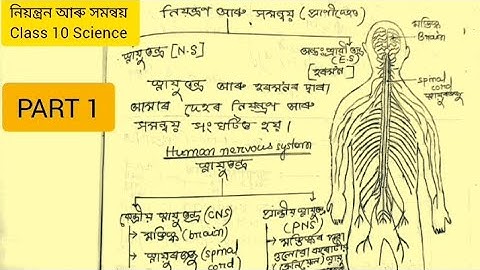 নিয়ন্ত্ৰন আৰু সমন্বয়
Class 10 Science
PART 1
নিয়ন্ত্ৰণ আৰু সমন্বয় (প্ৰাণীদেহত)
স্নায়ুতন্ত্ৰ [N.S]
অন্তঃস্ৰাৱী তন্ত্ৰ
(E.S)
[হৰমন]
স্নায়ুতন্ত্ৰ আৰু হৰমনৰ দ্বাৰা
আমাৰ দেহৰ নিয়ন্ত্ৰণ আৰু
সমন্বয় সংঘটিত হয়।
Human nervous system
স্নায়ুতন্ত্ৰ
কেন্দ্ৰীয় স্নায়ুতন্ত্ৰ (CNS)
→ মস্তিষ্ক (brain)
→ স্নায়ুৰজ্জু (spinal
cord
প্ৰান্তীয় স্নায়ুতন্ত্ৰ
(PNS)
→ মস্তিষ্কৰ পৰা
ওলোৱা
মস্তিষ্ক
Brain
spinal
cord
স্নায়ুৰজ্জু